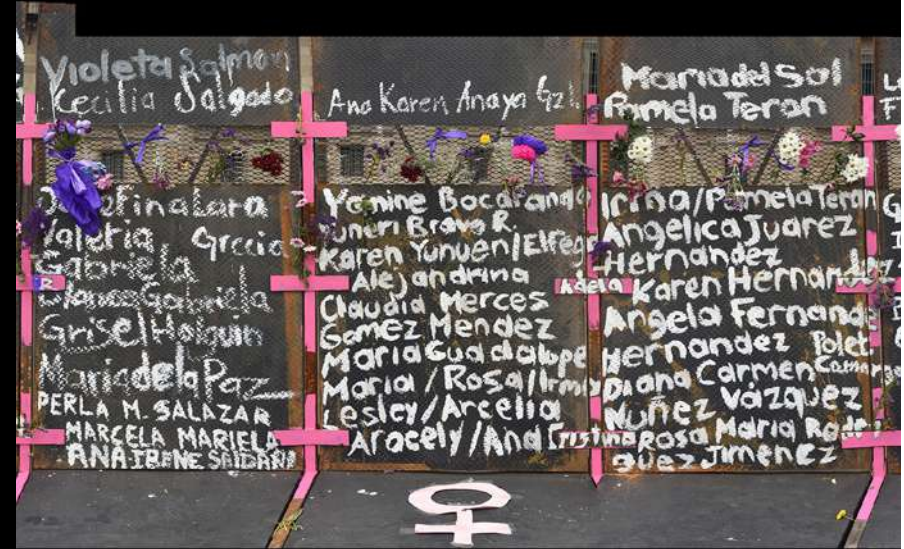 Violeta Salmon
Cecilia Salgado
Josefina Lara
Valeria Grecia
Gabriela
Blanca Gabriela
Grisel Holguin
Maria de la Paz
PERLA M. SALAZAR
MARCELA MARIELA
ANA IRENE
R
Ana Karen Anaya Gzl.
Yamine Bocarando
Yuneri Bravo R.
Karen Yunuen/Elfega
Alejandrina
Claudia Merces
Gomez Mendez
Maria Guadalupe
Maria / Rosa/Irma
Lesley/Arcelia
Arocely/Ana Cristina
Maria del Sol
Pamela Teran
Irina/Pamela Teran
Angelica Juarez
Hernandez
Adela Karen Hernandez
Angela Fernanda
Hernandez Polet
Diana Carmen Camargo
Nuñez Vázquez
Rosa Maria Rodri
guez Jimenez